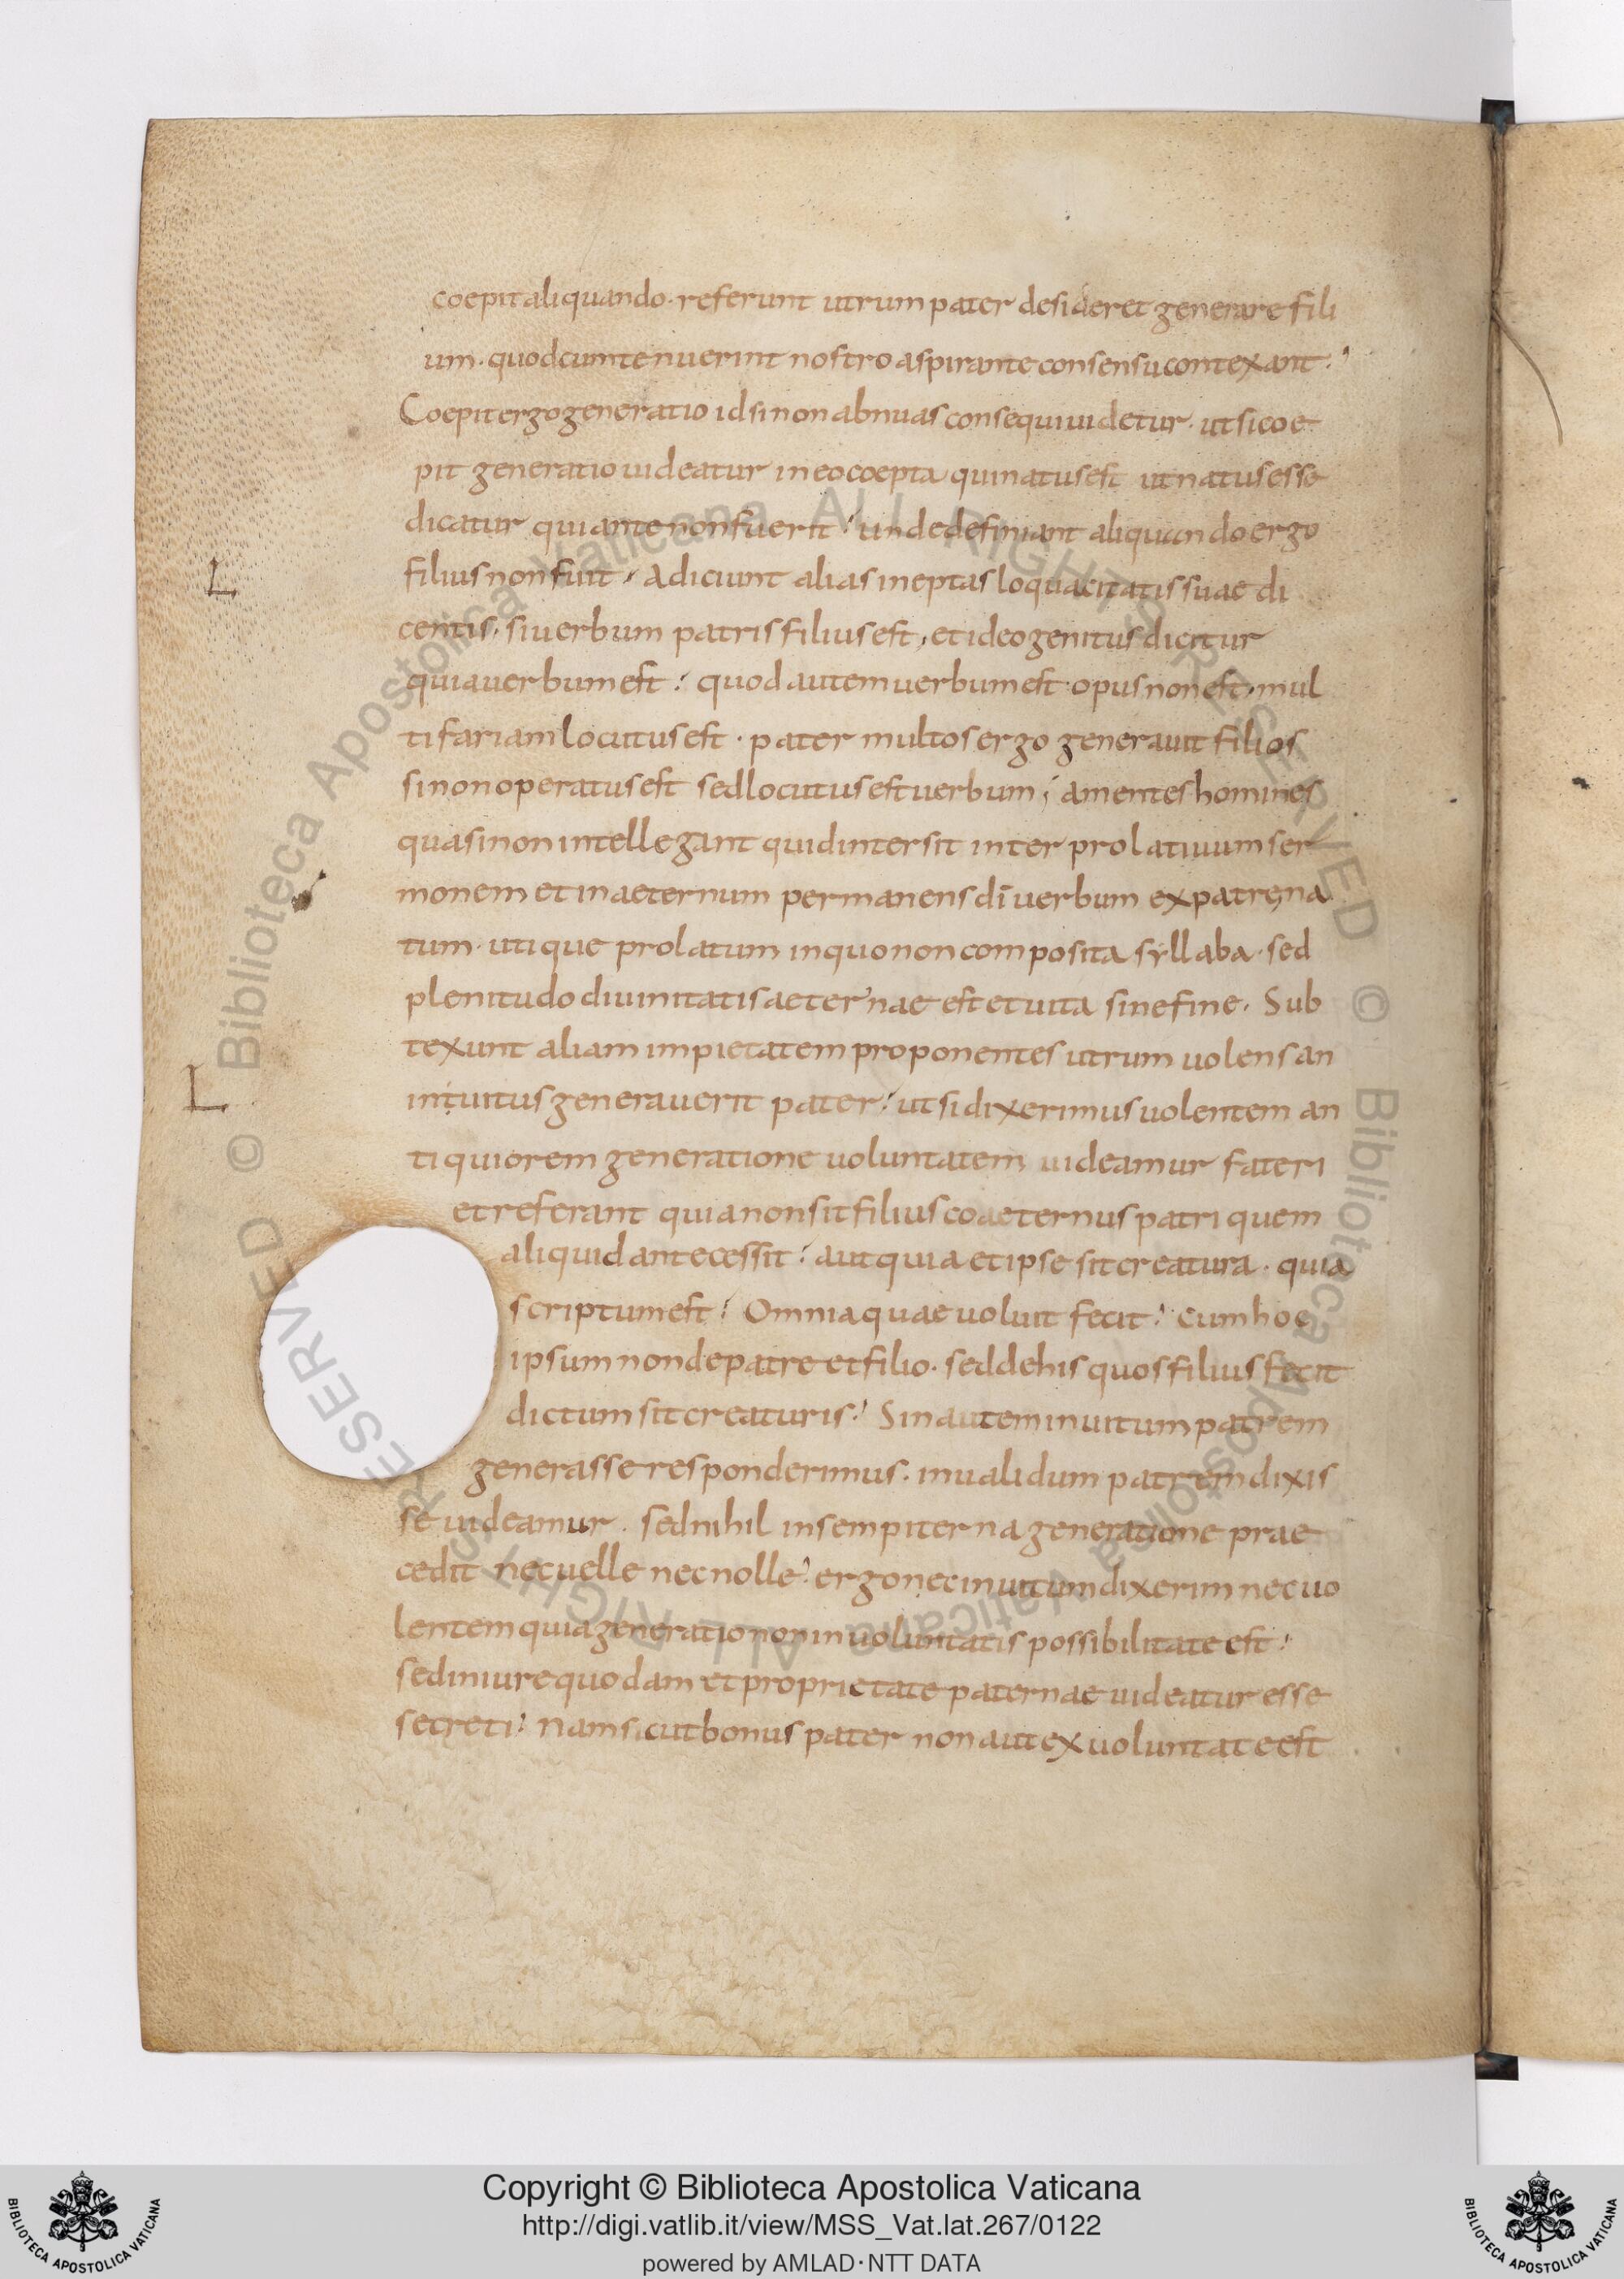 coepit aliquando · referunt utrum pater desideret generare fili
um · quod cum tenuerint nostro aspirante consensu contexant :'
Coepit ergo generatio id si non abnuas consequi uidetur · ut si coe
pit generatio uideatur in eo coepta qui natus est ut natus esse
dicatur qui ante non fuerit :' unde definiant aliquando ergo
L
filius non fuit :' Adiciunt alias ineptas loquacitatis suae di
centis · si uerbum patris filius est, et ideo genitus dicitur
quia uerbum est :' quod autem uerbum est · opus non est · mul
tifariam locutus est · pater multos ergo generauit filios
si non operatus est sed locutus est uerbum ; amentes homines
quasi non intellegant quid intersit inter prolatiuum ser
monem et in aeternum permanens dī uerbum ex patre na
tum · utique prolatum in quo non composita syllaba · sed
plenitudo diuinitatis aeternae est et uita sine fine · Sub
texunt aliam impietatem proponentes utrum uolens an
L
inuitus generauerit pater :' ut si dixerimus uolentem an
tiquiorem generatione uoluntatem uideamur fateri
et referant quia non sit filius coaeternus patri quem
aliquid antecessit :' aut quia et ipse sit creatura · quia
scriptum est :' Omnia quae uoluit fecit :' cum hoc
ipsum non de patre et filio · sed de his quos filius fecit
dictum sit creaturis :' Sin autem inuitum patrem
generasse responderimus · inualidum patrem dixis
se uideamur · sed nihil in sempiterna generatione prae
cedit nec uelle nec nolle :' ergo nec inuitum dixerim nec uo
lentem quia generatio non in uoluntatis possibilitate est :'
sed in iure quodam et proprietate paternae uideatur esse
secreti :' Nam sicut bonus pater non aut ex uoluntate est
Copyright © Biblioteca Apostolica Vaticana
http://digi.vatlib.it/view/MSS_Vat.lat.267/0122
powered by AMLAD · NTT DATA
BIBLIOTECA APOSTOLICA VATICANA
BIBLIOTECA APOSTOLICA VATICANA
© Biblioteca Apostolica Vaticana ALL RIGHTS RESERVED © Biblioteca Apostolica Vaticana ALL RIGHTS RESERVED